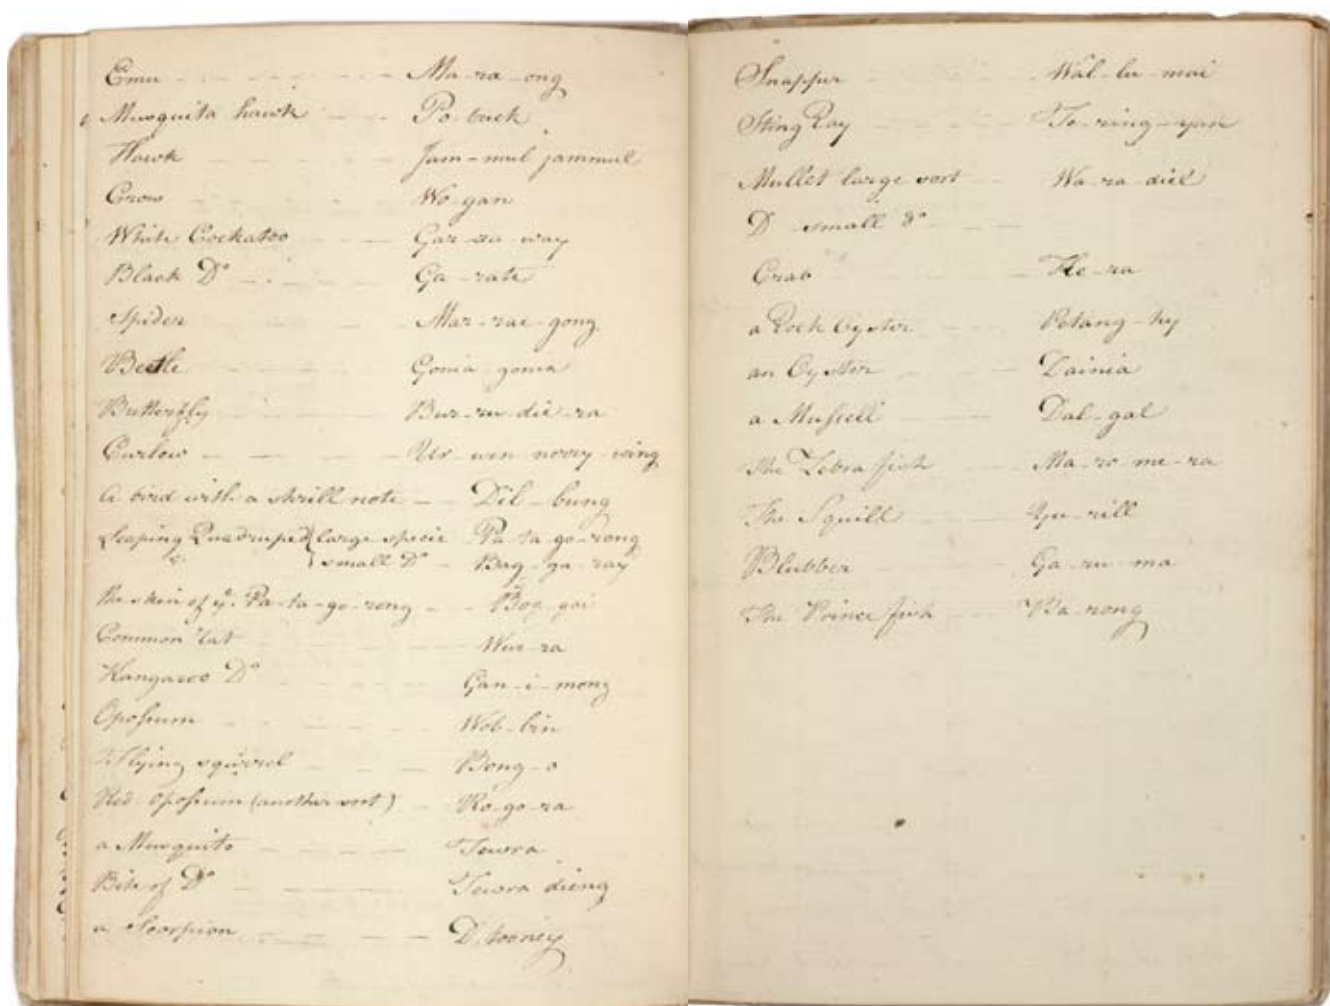 Emu - - - - - - Ma-ra-ong
Musquita hawk - - - Po-buck
Hawk - - - - Jam-mul jammul
Crow - - - - Wo-gan
White Cockatoo - - - Gar-ra-way
Black Do - - - Ga-rate
Spider - - - Mar-rae-gong
Beetle - - - Gonia-gonia
Butterfly - - - Bur-ru-die-ra
Curlow - - - - Ur-win-
A bird with a shrill note - - Dil-bung
Leaping Quadruped { large specie Pa-ta-go-rong
small Do - Bag-ga-ray
the skin of ye. Pa-ta-go-rong - - Bog-gai
Common rat - - - Wur-ra
Kangaroo Do - - - Gan-i-mong
Opossum - - - Wob-bin
Flying squirrel - - - Bong-o
Red opossum (another sort) - Ro-go-ra
a Musquito - - - - Tewra
Bite of Do - - - - Tewra dieng
a Scorpion - - - - Dtooney
Snapper - - - Wal-lu-mai
Sting Ray - - - - Te-ring-yan
Mullet large sort - - Wa-ra-diel
D - small do - -
Crab - - - Ke-ra
a Rock Oyster - - Petang-hy
an Oyster - - - Dainia
a Mussell - - - Dal-gal
The Zebra fish - - Ma-ro-me-ra
The Squill - - - Yu-rill
Blubber - - - Ga-ru-ma
The Prince fish - - - Wa-rong